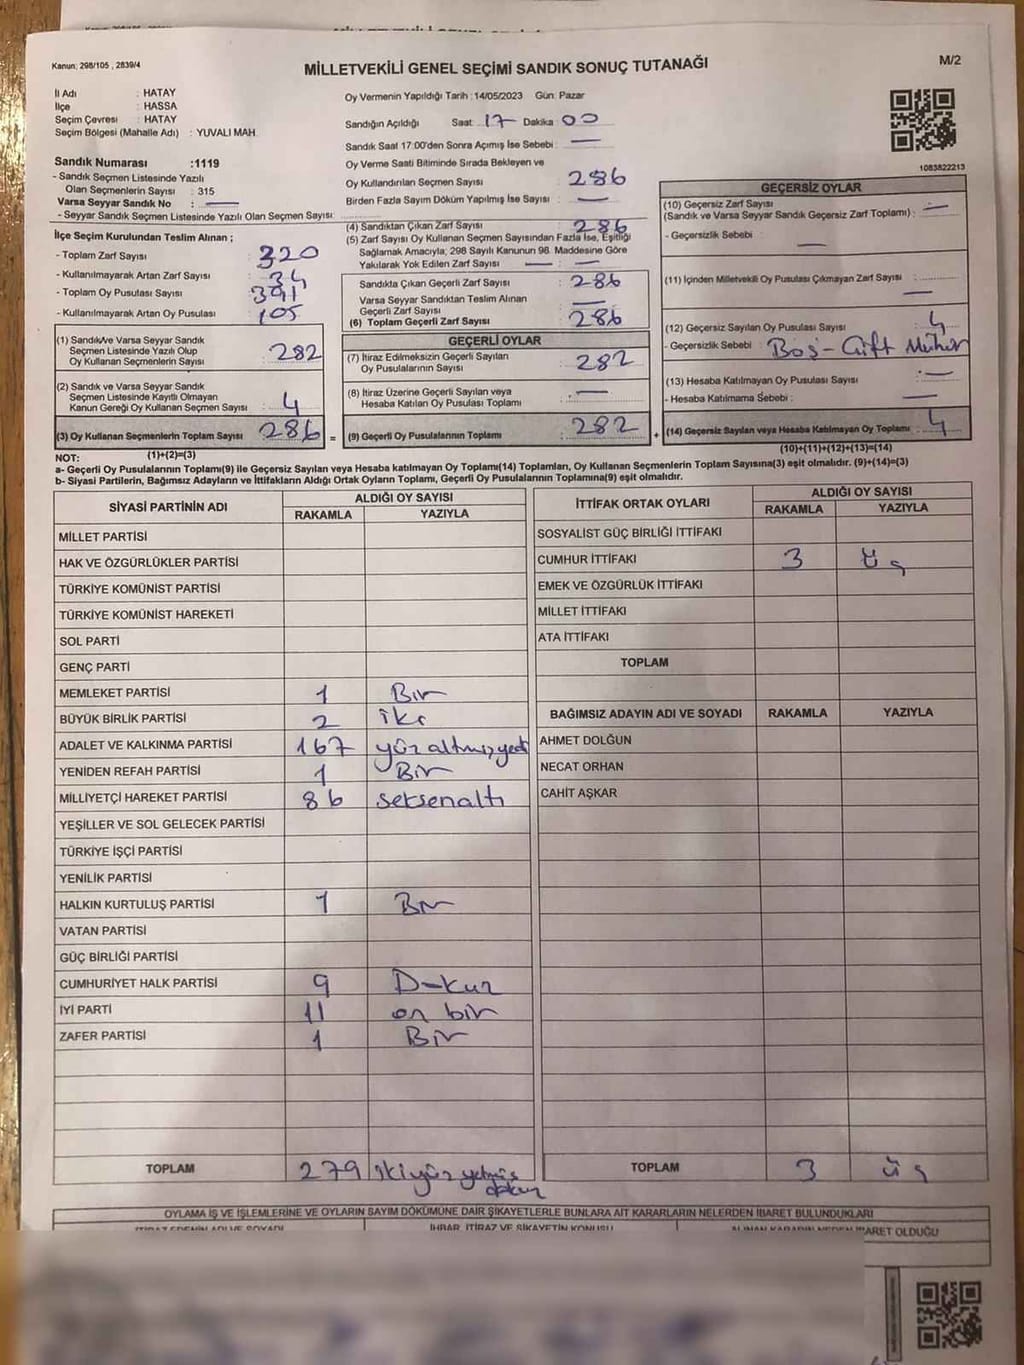 Kanun: 298/105 , 2839/4
MİLLETVEKİLİ GENEL SEÇİMİ SANDIK SONUÇ TUTANAĞI
M/2
İl Adı : HATAY
İlçe : HASSA
Seçim Çevresi : HATAY
Seçim Bölgesi (Mahalle Adı) : YUVALI MAH.
Sandık Numarası :1119
- Sandık Seçmen Listesinde Yazılı
Olan Seçmenlerin Sayısı : 315
Varsa Seyyar Sandık No : —
- Seyyar Sandık Seçmen Listesinde Yazılı Olan Seçmen Sayısı:
Oy Vermenin Yapıldığı Tarih :14/05/2023 Gün: Pazar
Sandığın Açıldığı Saat 17 Dakika 00
Sandık Saat 17:00'den Sonra Açımış İse Sebebi : —
Oy Verme Saati Bitiminde Sırada Bekleyen ve
Oy Kullandırılan Seçmen Sayısı : 286
Birden Fazla Sayım Döküm Yapılmış İse Sayısı : —
1083822213
İlçe Seçim Kurulundan Teslim Alınan ;
- Toplam Zarf Sayısı : 320
- Kullanılmayarak Artan Zarf Sayısı : 34
- Toplam Oy Pusulası Sayısı : 391
- Kullanılmayarak Artan Oy Pusulası : 105
(1) Sandık/Ve Varsa Seyyar Sandık
Seçmen Listesinde Yazılı Olup
Oy Kullanan Seçmenlerin Sayısı : 282
(2) Sandık ve Varsa Seyyar Sandık
Seçmen Listesinde Kayıtlı Olmayan
Kanun Gereği Oy Kullanan Seçmen Sayısı : 4
(3) Oy Kullanan Seçmenlerin Toplam Sayısı 286 =
(4) Sandıktan Çıkan Zarf Sayısı : 286
(5) Zarf Sayısı Oy Kullanan Seçmen Sayısından Fazla İse, Eşitliği
Sağlamak Amacıyla; 298 Sayılı Kanunun 98. Maddesine Göre
Yakılarak Yok Edilen Zarf Sayısı — : —
Sandıkta Çıkan Geçerli Zarf Sayısı : 286
Varsa Seyyar Sandıktan Teslim Alınan
Geçerli Zarf Sayısı : —
(6) Toplam Geçerli Zarf Sayısı : 286
GEÇERLİ OYLAR
(7) İtiraz Edilmeksizin Geçerli Sayılan
Oy Pusulalarının Sayısı : 282
(8) İtiraz Üzerine Geçerli Sayılan veya
Hesaba Katılan Oy Pusulası Toplamı : —
(9) Geçerli Oy Pusulalarının Toplamı : 282 +
GEÇERSİZ OYLAR
(10) Geçersiz Zarf Sayısı
(Sandık ve Varsa Seyyar Sandık Geçersiz Zarf Toplamı) : —
- Geçersizlik Sebebi : —
(11) İçinden Milletvekili Oy Pusulası Çıkmayan Zarf Sayısı : —
(12) Geçersiz Sayılan Oy Pusulası Sayısı : 4
- Geçersizlik Sebebi : Boş - Çift Mühür
(13) Hesaba Katılmayan Oy Pusulası Sayısı : —
- Hesaba Katılmama Sebebi : —
(14) Geçersiz Sayılan veya Hesaba Katılmayan Oy Toplamı : 4
NOT: (1)+(2)=(3)
(10)+(11)+(12)+(13)=(14)
a- Geçerli Oy Pusulalarının Toplamı(9) ile Geçersiz Sayılan veya Hesaba katılmayan Oy Toplamı(14) Toplamları, Oy Kullanan Seçmenlerin Toplam Sayısına(3) eşit olmalıdır. (9)+(14)=(3)
b- Siyasi Partilerin, Bağımsız Adayların ve İttifakların Aldığı Ortak Oyların Toplamı, Geçerli Oy Pusulalarının Toplamına(9) eşit olmalıdır.
SİYASİ PARTİNİN ADI ALDIĞI OY SAYISI
RAKAMLA YAZIYLA
MİLLET PARTİSİ
HAK VE ÖZGÜRLÜKLER PARTİSİ
TÜRKİYE KOMÜNİST PARTİSİ
TÜRKİYE KOMÜNİST HAREKETİ
SOL PARTİ
GENÇ PARTİ
MEMLEKET PARTİSİ 1 Bir
BÜYÜK BİRLİK PARTİSİ 2 iki
ADALET VE KALKINMA PARTİSİ 167 yüz altmış yedi
YENİDEN REFAH PARTİSİ 1 Bir
MİLLİYETÇİ HAREKET PARTİSİ 86 seksenaltı
YEŞİLLER VE SOL GELECEK PARTİSİ
TÜRKİYE İŞÇİ PARTİSİ
YENİLİK PARTİSİ
HALKIN KURTULUŞ PARTİSİ 1 Bir
VATAN PARTİSİ
GÜÇ BİRLİĞİ PARTİSİ
CUMHURİYET HALK PARTİSİ 9 Dokuz
İYİ PARTİ 11 on bir
ZAFER PARTİSİ 1 Bir
TOPLAM 279 ikiyüz yetmiş dokuz
İTTİFAK ORTAK OYLARI ALDIĞI OY SAYISI
RAKAMLA YAZIYLA
SOSYALİST GÜÇ BİRLİĞİ İTTİFAKI
CUMHUR İTTİFAKI 3 Üç
EMEK VE ÖZGÜRLÜK İTTİFAKI
MİLLET İTTİFAKI
ATA İTTİFAKI
TOPLAM
BAĞIMSIZ ADAYIN ADI VE SOYADI RAKAMLA YAZIYLA
AHMET DOLĞUN
NECAT ORHAN
CAHİT AŞKAR
TOPLAM 3 üç
OYLAMA İŞ VE İŞLEMLERİNE VE OYLARIN SAYIM DÖKÜMÜNE DAİR ŞİKAYETLERLE BUNLARA AİT KARARLARIN NELERDEN İBARET BULUNDUKLARI
İTİRAZ EDENİN ADI VE SOYADI İHBAR, İTİRAZ VE ŞİKAYETİN KONUSU